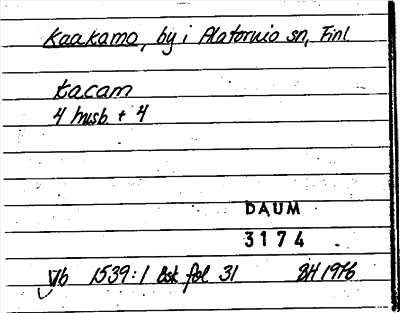 Kaakamo, by i Alatornio sn, Finl
kacam
4 husb. + 4
DAUM
3174
Vb 1539:1 Bsk fol 31 BH 1976